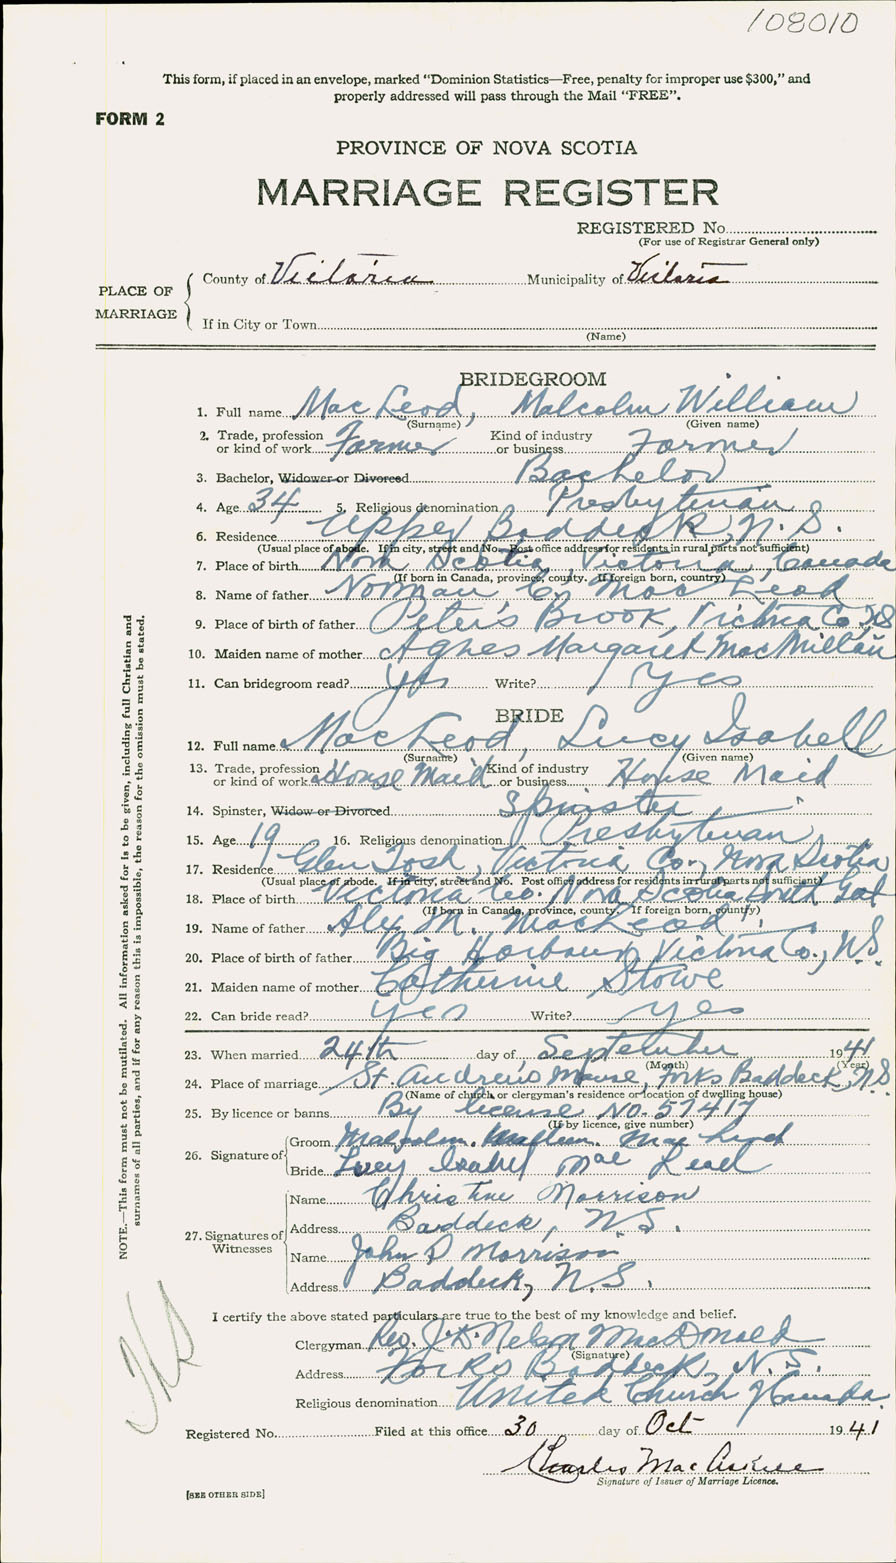 108010
This form, if placed in an envelope, marked “Dominion Statistics—Free, penalty for improper use $300,” and
properly addressed will pass through the Mail “FREE”.
FORM 2
PROVINCE OF NOVA SCOTIA
MARRIAGE REGISTER
REGISTERED No.
(For use of Registrar General only)
PLACE OF MARRIAGE
County of Victoria Municipality of Victoria
If in City or Town
(Name)
BRIDEGROOM
1. Full name MacLeod, Malcolm William
(Surname) (Given name)
2. Trade, profession or kind of work Farmer Kind of industry or business Farmer
3. Bachelor, Widower or Divorced Bachelor
4. Age 34 5. Religious denomination Presbyterian
6. Residence Upper Baddeck, N.S.
(Usual place of abode. If in city, street and No. Post office address for residents in rural parts not sufficient)
7. Place of birth Nova Scotia, Victoria, Canada
(If born in Canada, province, county. If foreign born, country)
8. Name of father Norman C. MacLeod
9. Place of birth of father Peter's Brook, Victoria Co., NS
10. Maiden name of mother Agnes Margaret MacMillan
11. Can bridegroom read? Yes Write? Yes
BRIDE
12. Full name MacLeod, Lucy Isabell
(Surname) (Given name)
13. Trade, profession or kind of work House Maid Kind of industry or business House Maid
14. Spinster, Widow or Divorced Spinster
15. Age 19 16. Religious denomination Presbyterian
17. Residence Glen Tosh, Victoria Co., Nova Scotia
(Usual place of abode. If in city, street and No. Post office address for residents in rural parts not sufficient)
18. Place of birth Victoria Co. Nova Scotia South Gut
(If born in Canada, province, county. If foreign born, country)
19. Name of father Alex M. MacLeod
20. Place of birth of father Big Harbour, Victoria Co., N.S.
21. Maiden name of mother Catherine Stowe
22. Can bride read? Yes Write? Yes
23. When married 24th day of September 1941
(Month) (Year)
24. Place of marriage St. Andrew's Manse, Forks Baddeck, N.S.
(Name of church, or clergyman's residence or location of dwelling house)
25. By licence or banns By license No. 57417
(If by licence, give number)
26. Signature of
Groom Malcolm William MacLeod
Bride Lucy Isabel MacLeod
27. Signatures of Witnesses
Name Christine Morrison
Address Baddeck, N.S.
Name John D Morrison
Address Baddeck, N.S.
I certify the above stated particulars are true to the best of my knowledge and belief.
Clergyman Rev. J. Nelson MacDonald
(Signature)
Address Forks Baddeck, N.S.
Religious denomination United Church of Canada
Registered No. Filed at this office 30 day of Oct 1941
Charles MacAskill
Signature of Issuer of Marriage Licence.
[SEE OTHER SIDE]
NOTE.—This form must not be mutilated. All information asked for is to be given, including full Christian and
surnames of all parties, and if for any reason this is impossible, the reason for the omission must be stated.